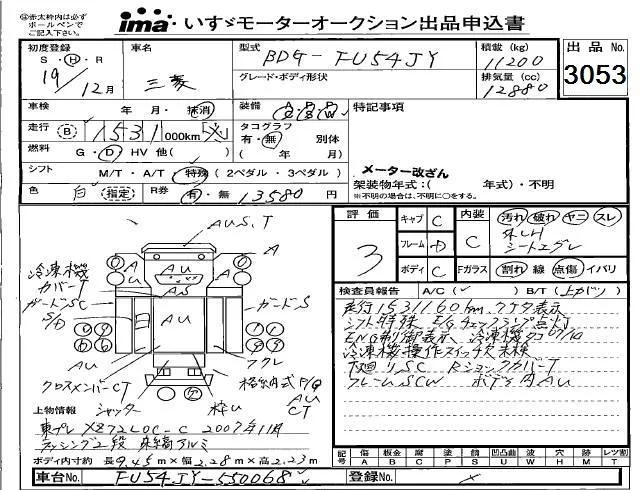 ※赤太枠内は必ずボールペンでご記入下さい。
ima いすゞモーターオークション出品申込書
初度登録 S・H・R 19/12月
車名 三菱
型式 BDG-FU54JY
グレード・ボディ形状
積載(kg) 11200
排気量(cc) 12880
出品No. 3053
車検 年 月・抹消
装備
特記事項
走行 B 1531 000km
タコグラフ 有・無 別体 ( 年 月)
燃料 G・D・HV 他( )
シフト M/T・A/T・特殊(2ペダル・3ペダル)
メーター改ざん
架装物年式:( 年式)・不明
※不明の場合は、不明に○をする。
色 白 指定 R券 有・無 13580 円
AUS.T
A
A
A
AU
AS
冷凍機カバーT
ガードSC
S/D
AU
ガードS
フクレ
クロスメンバーCT
シャッター
枠U
格納式P/G
AU
CT
評価 3
キャブ C
フレーム 中
ボディ C
内装 C
汚れ 破れ ヤニ スレ
シートコゲ
Fガラス 割れ 線 点傷 イバリ
検査員報告 A/C(✓) B/T(上カブリ)
走行1531160km
シフト特殊 E/Gチェックランプ点灯
ENG制御表示 冷凍機
冷凍機操作スイッチ欠 未検
下廻りSC RショックカバーT
フレームSCW ボデー内AU
上物情報
東プレ XZ72LOC-C 2007年11月
ラッシング2段 床縞アルミ
ボディ内寸約 長9.45m×幅2.28m×高2.23m
記号 傷A 板金B 破C 塗P 錆S 凹凸凹U 波W 穴H 跡M レツ割T
車台No. FU54JY-550068
登録No.